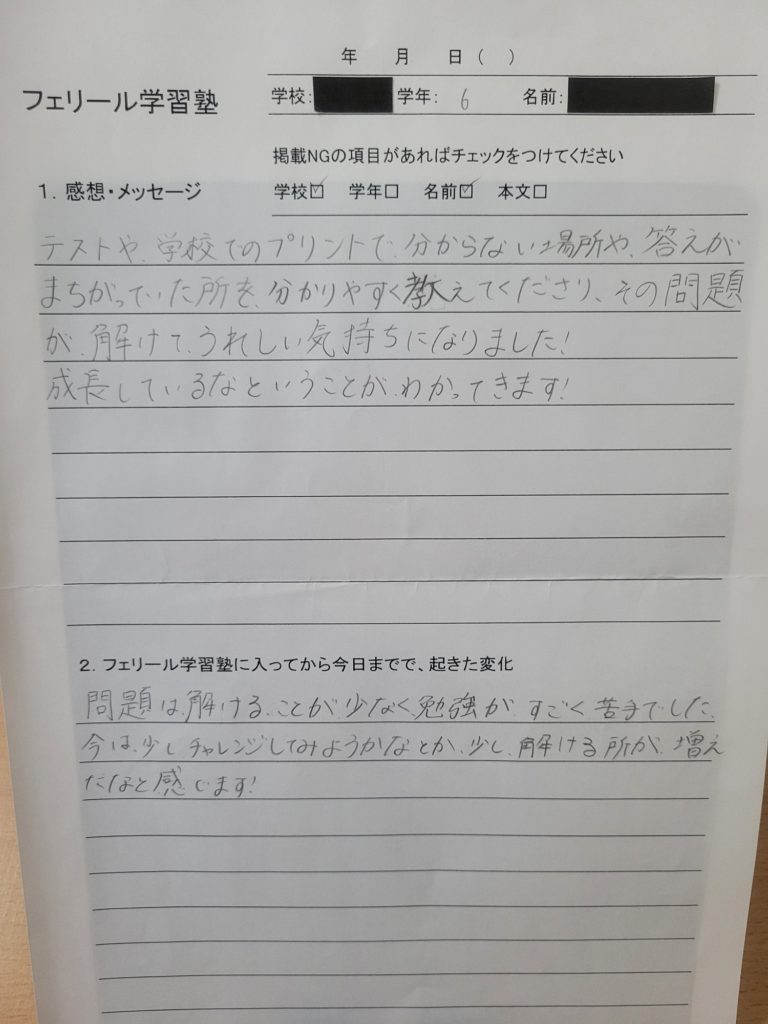 年 月 日 ( )
フェリール学習塾
学校: 学年: 6 名前:
掲載NGの項目があればチェックをつけてください
1. 感想・メッセージ
学校☑ 学年□ 名前☑ 本文□
テストや、学校でのプリントで、分からない場所や、答えが
まちがっていた所を、分かりやすく教えてくださり、その問題
が、解けて、うれしい気持ちになりました!
成長しているなということが、わかってきます!
2. フェリール学習塾に入ってから今日までで、起きた変化
問題は解ける、ことが少なく勉強が、すごく苦手でした。
今は、少しチャレンジしてみようかなとか、少し、解ける所が、増え
だなと感じます!